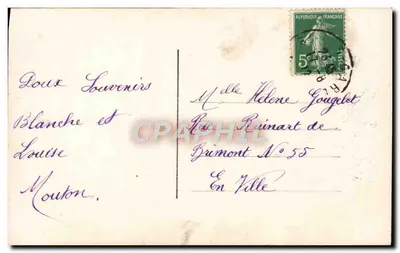 Doux Souvenirs
Blanche et
Louise
Mouton.
REPUBLIQUE FRANÇAISE
5c
POSTES
Melle Helene Gougelet
Rue Ruinart de
Brimont No 55
En Ville
CPAPHIL